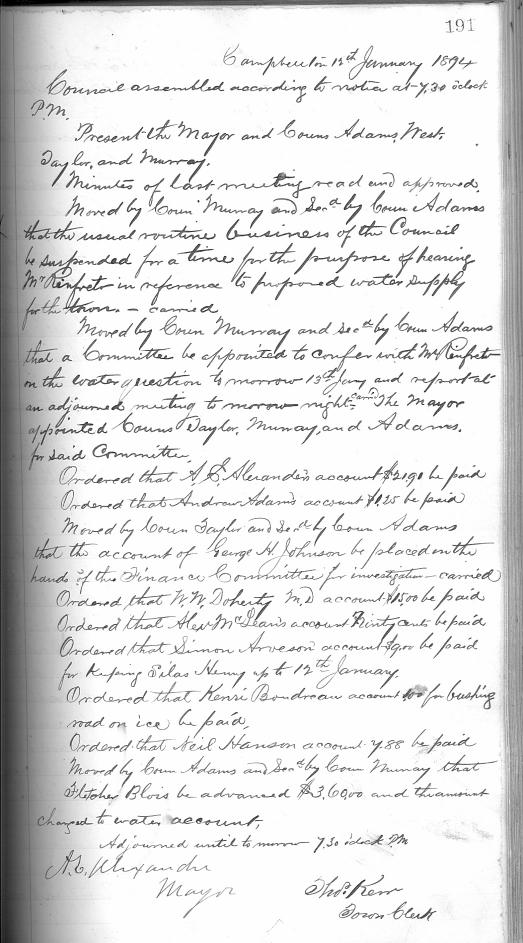 191
Campbellton 12th January 1894
Council assembled according to notice at 7.30 o'clock
P.M.
Present the Mayor and Couns Adams, West,
Taylor, and Murray.
Minutes of last meeting read and approved.
Moved by Coun Murray and Secd by Coun Adams
that the usual routine business of the Council
be suspended for a time for the purpose of hearing
Mr Renfret in reference to proposed water supply
for the town. - carried
Moved by Coun Murray and Secd by Coun Adams
that a Committee be appointed to confer with Mr Renfret
on the water question to morrow 13th Jany and report at
an adjourned meeting to morow night- carrd The Mayor
appointed Couns Taylor, Murray, and Adams.
for said Committee,
Ordered that A.E. Alexanders account $ be paid
Ordered that Andrew Adams account $1.25 be paid
Moved by Coun Taylor and Secd by Coun Adams
that the account of George H. Johnson be placed in the
hands of the Finance Committee for investigation - carried
Ordered, that W.W. Doherty M.D account $15.00 be paid
Ordered that Alex McLean's account Ninty cents be paid
Ordered that Simon Arveson account $9.00 be paid
for Keping Silas Henny up to 12th January,
Ordered that Kenzi Boudreau account for bushing
road on ice be paid,
Ordered that Neil Hanson account 7.88 be paid
Moved by Coun Adams and Secd by Coun Murray that
Fletcher Blois be advanced $3,60,00 and the amount
charged to water account,
Adjourned until to morrow 7.30 o'clock P.M
A.E. Alexander
Mayor
Thos. Kerr
Town Clerk